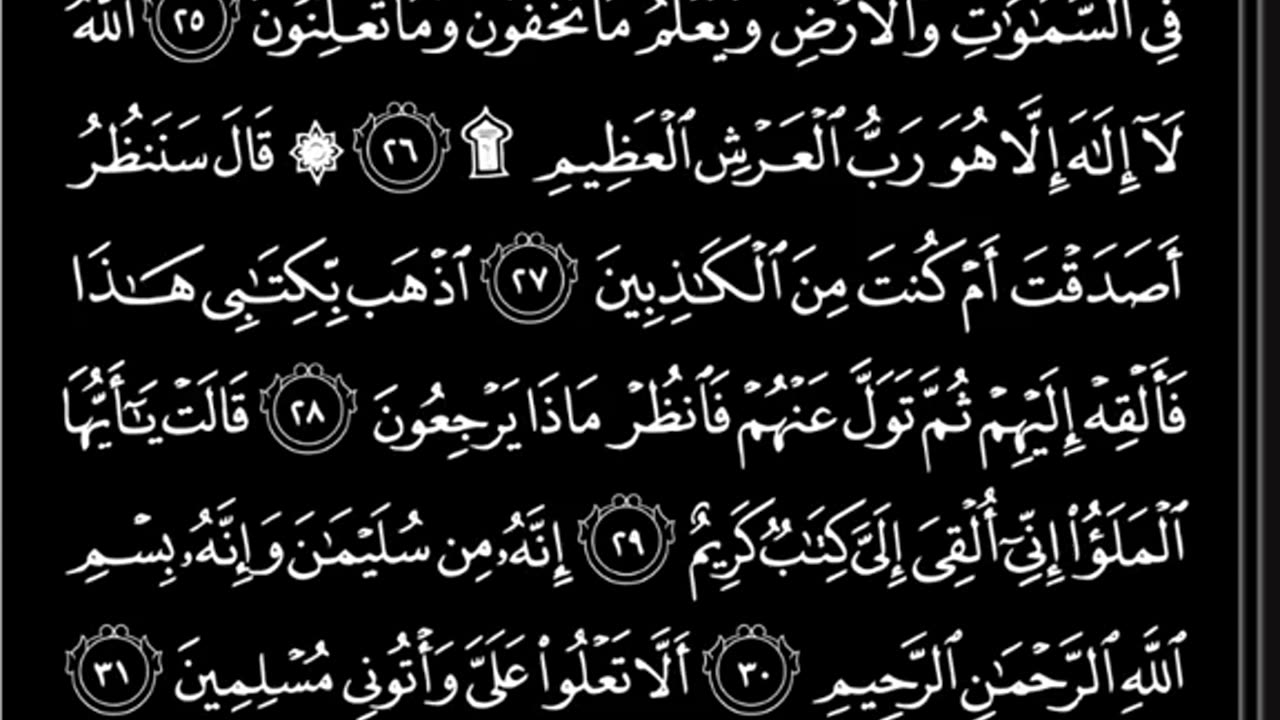 فِي ٱلسَّمَٰوَٰتِ وَٱلۡأَرۡضِ وَيَعۡلَمُ مَا تُخۡفُونَ وَمَا تُعۡلِنُونَ ٢٥ ٱللَّهُ
لَآ إِلَٰهَ إِلَّا هُوَ رَبُّ ٱلۡعَرۡشِ ٱلۡعَظِيمِ ۩ ٢٦ ۞ قَالَ سَنَنظُرُ
أَصَدَقۡتَ أَمۡ كُنتَ مِنَ ٱلۡكَٰذِبِينَ ٢٧ ٱذۡهَب بِّكِتَٰبِي هَٰذَا
فَأَلۡقِهۡ إِلَيۡهِمۡ ثُمَّ تَوَلَّ عَنۡهُمۡ فَٱنظُرۡ مَاذَا يَرۡجِعُونَ ٢٨ قَالَتۡ يَٰٓأَيُّهَا
ٱلۡمَلَؤُاْ إِنِّيٓ أُلۡقِيَ إِلَيَّ كِتَٰبٞ كَرِيمٌ ٢٩ إِنَّهُۥ مِن سُلَيۡمَٰنَ وَإِنَّهُۥ بِسۡمِ
ٱللَّهِ ٱلرَّحۡمَٰنِ ٱلرَّحِيمِ ٣٠ أَلَّا تَعۡلُواْ عَلَيَّ وَأۡتُونِي مُسۡلِمِينَ ٣١